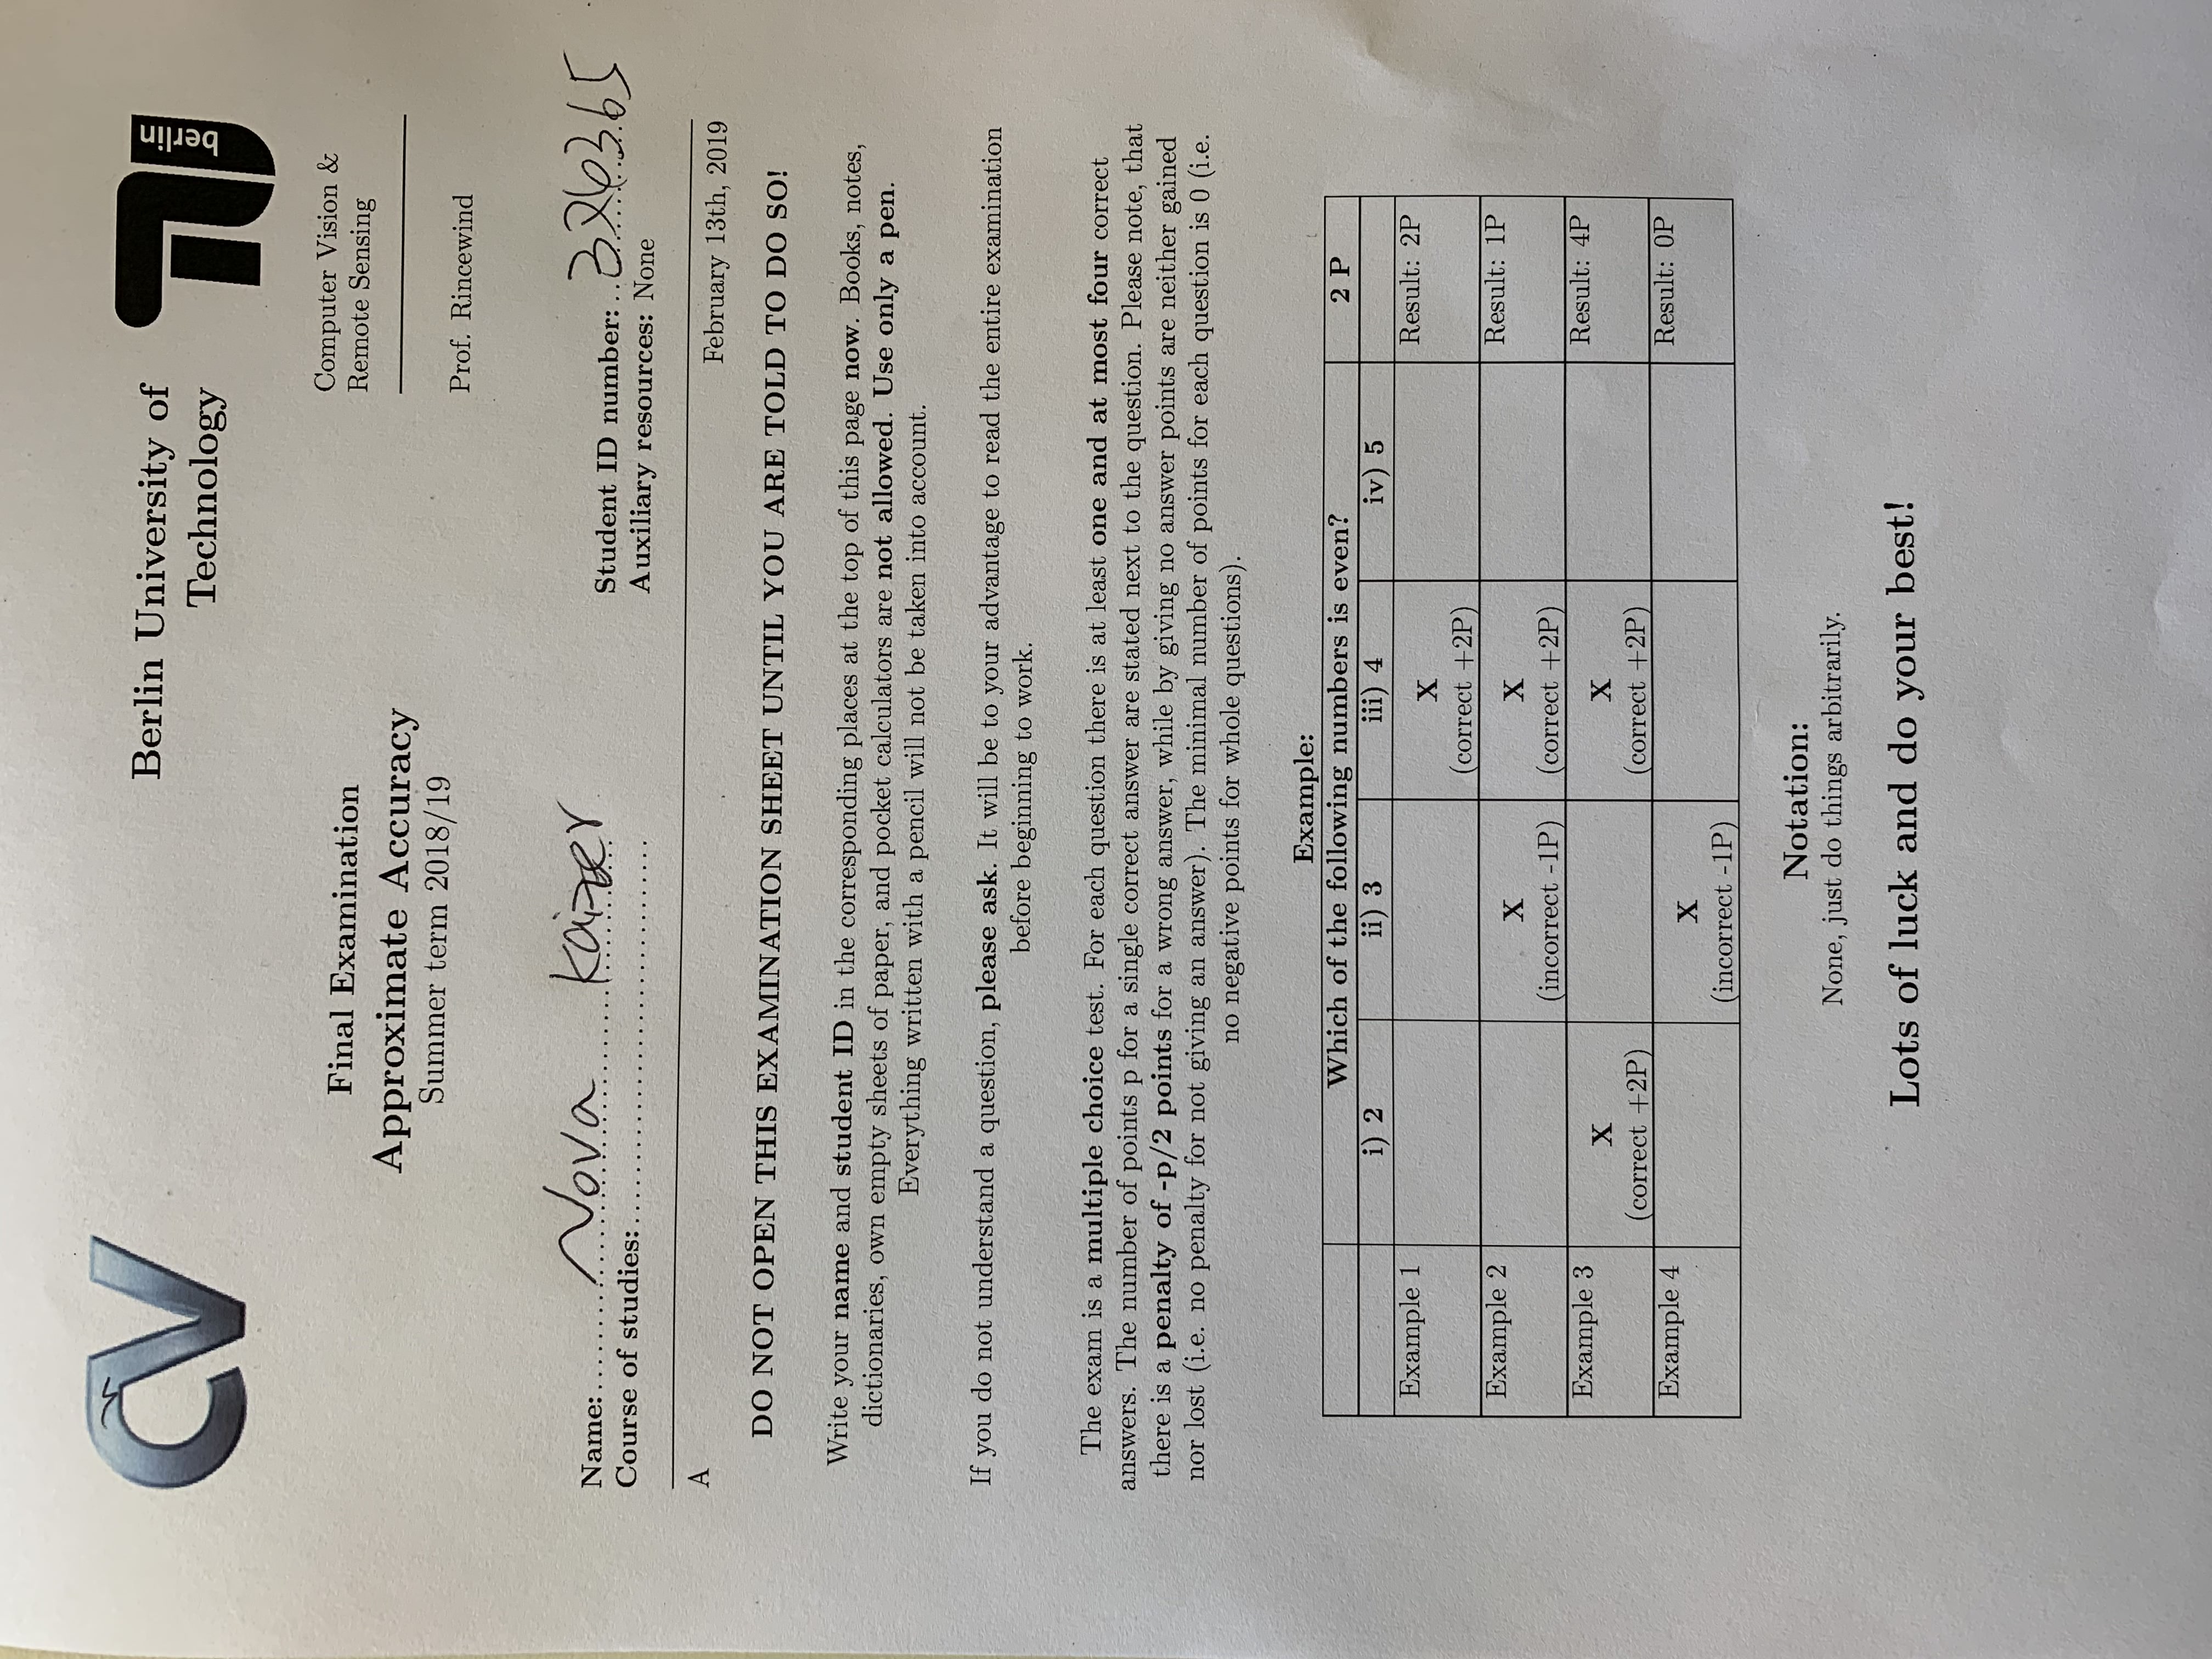 CV
Berlin University of
Technology
berlin
Computer Vision &
Remote Sensing
Prof. Rincewind
Final Examination
Approximate Accuracy
Summer term 2018/19
Name:.......... Nova Kaizer
Student ID number:.. 326365
Course of studies:....................................
Auxiliary resources: None
A
February 13th, 2019
DO NOT OPEN THIS EXAMINATION SHEET UNTIL YOU ARE TOLD TO DO SO!
Write your name and student ID in the corresponding places at the top of this page now. Books, notes,
dictionaries, own empty sheets of paper, and pocket calculators are not allowed. Use only a pen.
Everything written with a pencil will not be taken into account.
If you do not understand a question, please ask. It will be to your advantage to read the entire examination
before beginning to work.
The exam is a multiple choice test. For each question there is at least one and at most four correct
answers. The number of points p for a single correct answer are stated next to the question. Please note, that
there is a penalty of -p/2 points for a wrong answer, while by giving no answer points are neither gained
nor lost (i.e. no penalty for not giving an answer). The minimal number of points for each question is 0 (i.e.
no negative points for whole questions).
Example:
Which of the following numbers is even? 2 P
i) 2 ii) 3 iii) 4 iv) 5
Example 1 X Result: 2P
(correct +2P)
Example 2 X X Result: 1P
(incorrect -1P) (correct +2P)
Example 3 X X Result: 4P
(correct +2P) (correct +2P)
Example 4 X Result: 0P
(incorrect -1P)
Notation:
None, just do things arbitrarily.
Lots of luck and do your best!